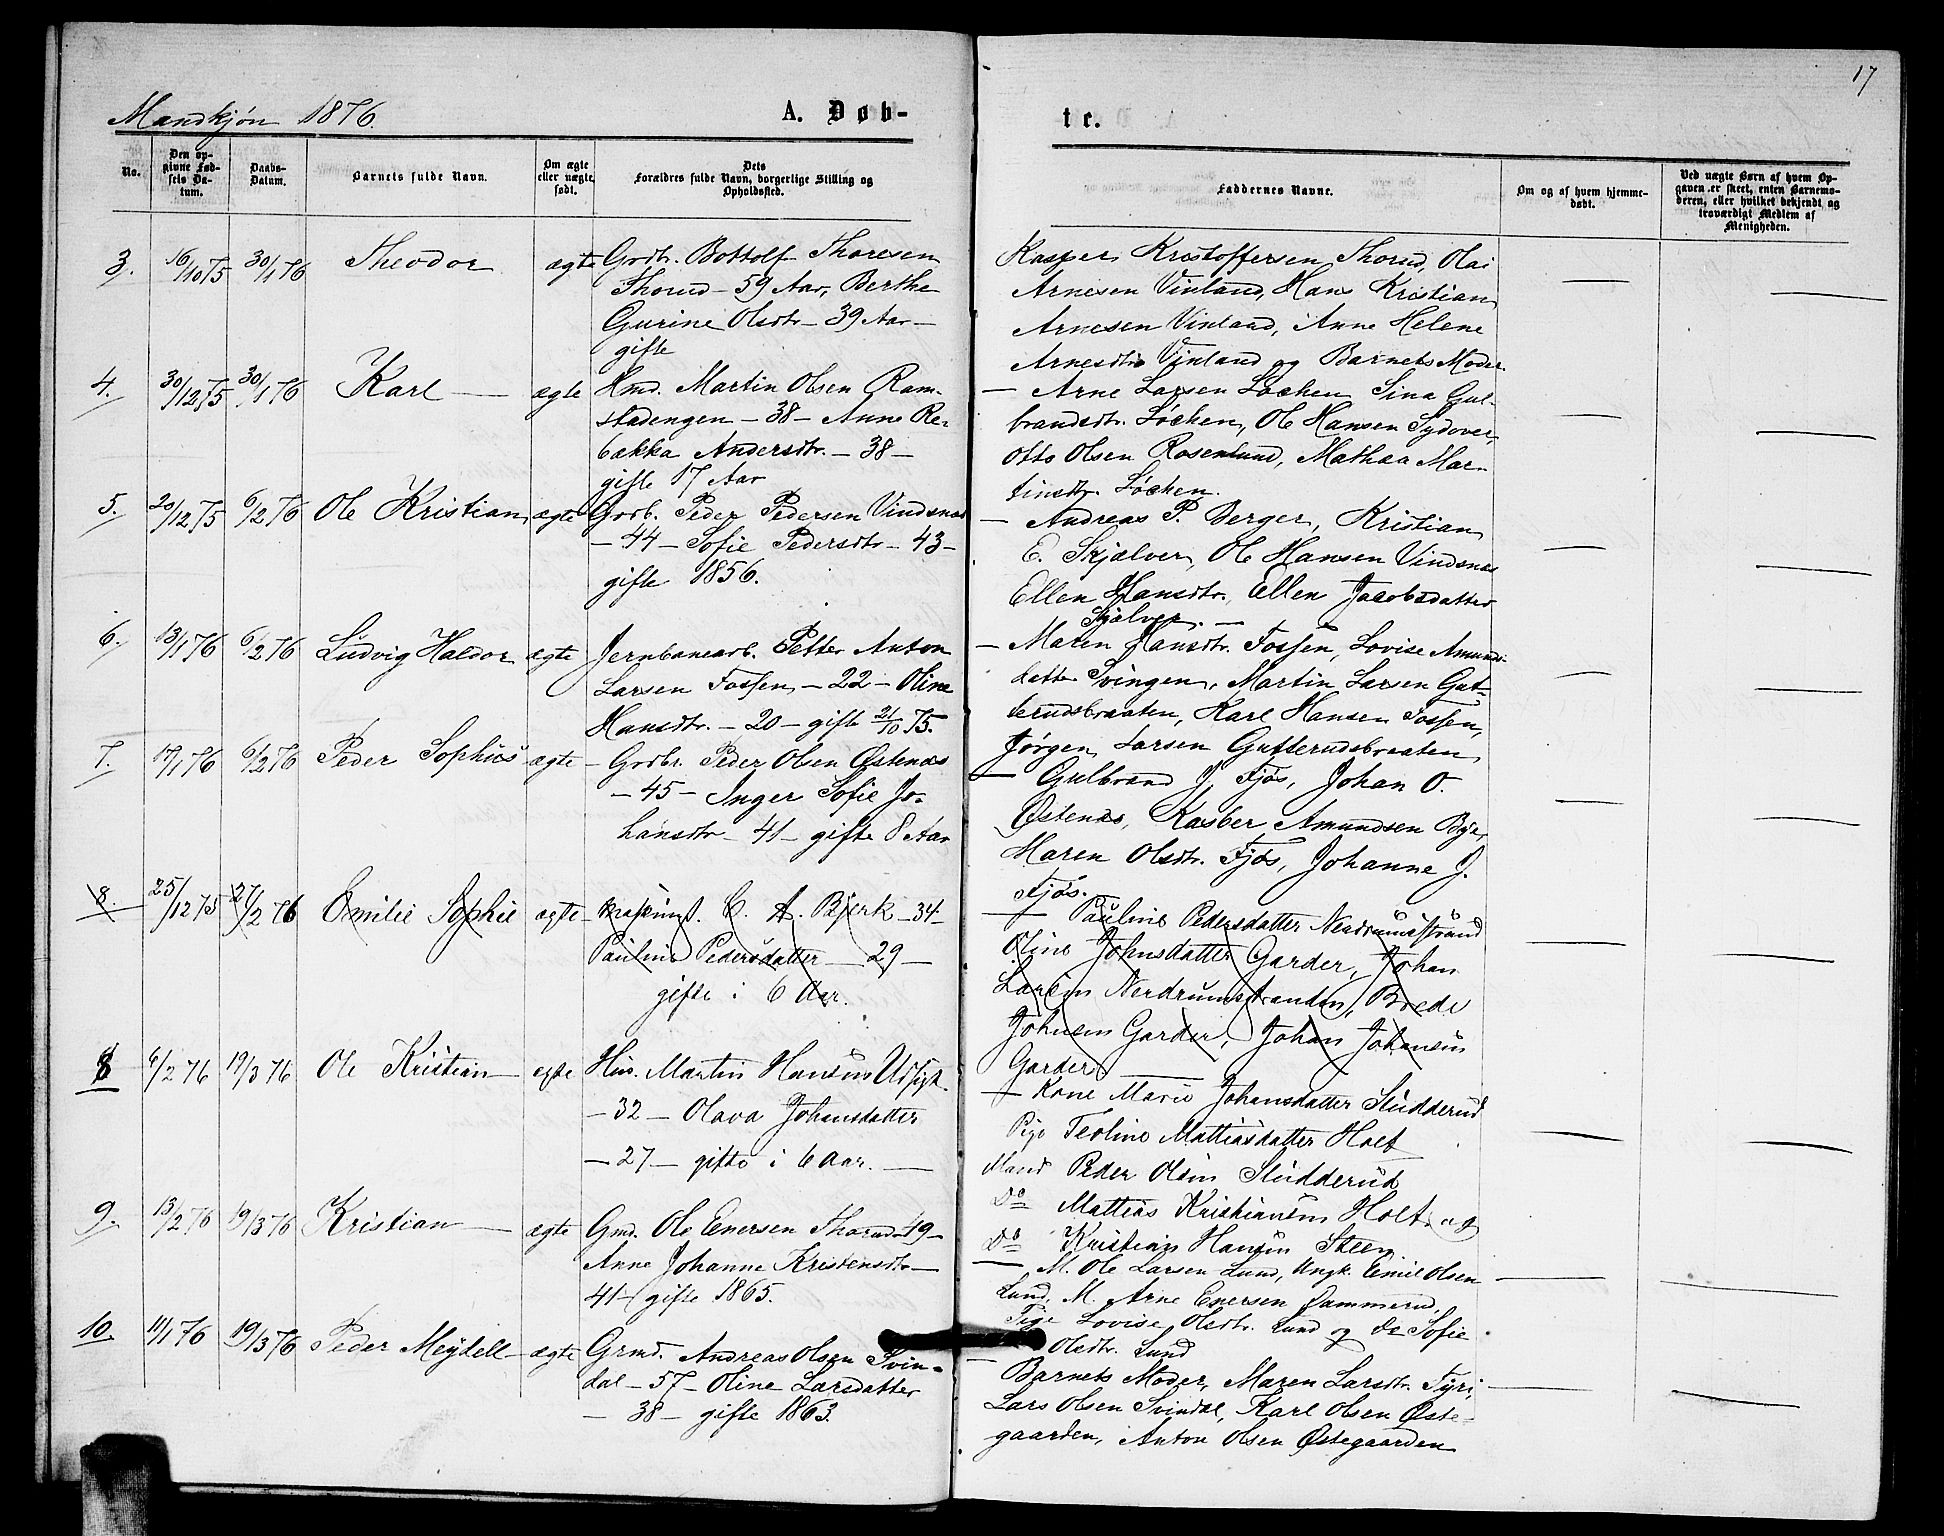 17
Mandkjøn 1876.
A. Døb-
te.
No.
Den op-
givne Fød-
sels Da-
tum.
Daabs-
Datum.
Barnets fulde Navn.
Om ægte
eller uægte
født.
Dets
Forældres fulde Navn, borgerlige Stilling og
Opholdssted.
Faddernes Navne.
Om og af hvem hjemme-
døbt.
Ved uægte Børn af hvem Op-
gaven er skeet, enten Barnemo-
deren, eller hvilket bekjendt og
troværdigt Medlem af
Menigheden.
3. 16/10 75 30/1 76 Theodor ægte Grdbr. Bottolf Thoresen
Thorud – 59 Aar, Berthe
Gurine Olsdtr – 39 Aar –
gifte
Kasper Kristoffersen Thorud, Olai
Arnesen Vinland, Hans Kristian
Arnesen Vinland, Anne Helene
Arnesdtr Vinland og Barnets Moder.
4. 30/12 75 30/1 76 Karl – ægte Hmd. Martin Olsen Ram-
stadengen – 38 – Anne Re-
bækka Andersdtr. – 38 –
gifte 17 Aar
– Arne Larsen Løcken Sina Gul-
brandsdtr. Løcken, Ole Hansen Sydover,
Otto Olsen Rosenlund, Mathea Mar-
tinsdtr. Løcken.
5. 20/12 75 6/2 76 Ole Kristian ægte Grdb. Peder Pedersen Vindsnæs
– 44 – Sofie Pedersdtr – 43 –
gifte 1856.
– Andreas P. Berger, Kristian
E. Skjælver, Ole Hansen Vindsnæs
Ellen Hansdtr., Ellen Jacobsdatter
Skjælver. –
6. 13/1 76 6/2 76 Ludvig Haldor ægte Jernbanearb. Petter Anton
Larsen Fossen – 22 – Oline
Hansdtr. – 20 – gifte 21/10 75.
– Maren Hansdtr. Fossen, Lovise Amunds-
datter Svingen, Martin Larsen Gut-
terudsbraaten, Karl Hansen Fossen,
Jørgen Larsen Gutterudsbraaten
7. 17/1 76 6/2 76 Peder Sophus ægte – Grdbr. Peder Olsen Østenæs
– 45 – Inger Sofie Jo-
hansdtr – 41 – gifte 8 Aar
– Gulbrand J. Fjøs, Johan O.
Østenæs, Kasber Amundsen Bye,
Maren Olsdtr. Fjøs, Johanne J.
Fjøs.
8. 25/12 75 27/2 76 Emilie Sophie ægte C. A. Bjerk – 34 –
Pauline Pedersdatter – 29 –
gifte i 6 Aar.
– Pauline Pedersdatter Nerdrumsstrand
Oline Johnsdatter Garder, Johan
Larsen Nerdrumstranden, Brede
Johnsen Garder, Johan Johansen
Garder –
8 6/2 76 19/3 76 Ole Kristian – ægte Hus. Martin Hansen Udsigt.
– 32 – Olava Johansdatter
– 27 – gifte i 6 Aar. –
– Kone Marie Johansdatter Sludderud
Pige Teoline Mattiasdatter Holt
Mand Peder Olsen Sludderud
Do Mattias Kristiansen Holt og
Do Kristian Hansen Steen
9. 13/2 76 19/3 76 Kristian – ægte Gmd. Ole Enersen Thorud – 49 –
Anne Johanne Kristensdtr –
41 – gifte 1865.
– M. Ole Larsen Lund, Ungk. Emil Olsen
Lund, M. Arne Enersen Dammerud,
Pige Lovise Olsdtr. Lund og Do Sofie
Olsdtr. Lund
10. 11/1 76 19/3 76 Peder Meydell – ægte Grmd. Andreas Olsen Svin-
dal – 57 – Oline Larsdatter
– 38 – gifte 1863.
– Barnets Moder, Maren Larsdtr. Tyri,
Lars Olsen Svindal, Karl Olsen Øste-
gaarden, Anton Olsen Østegaarden